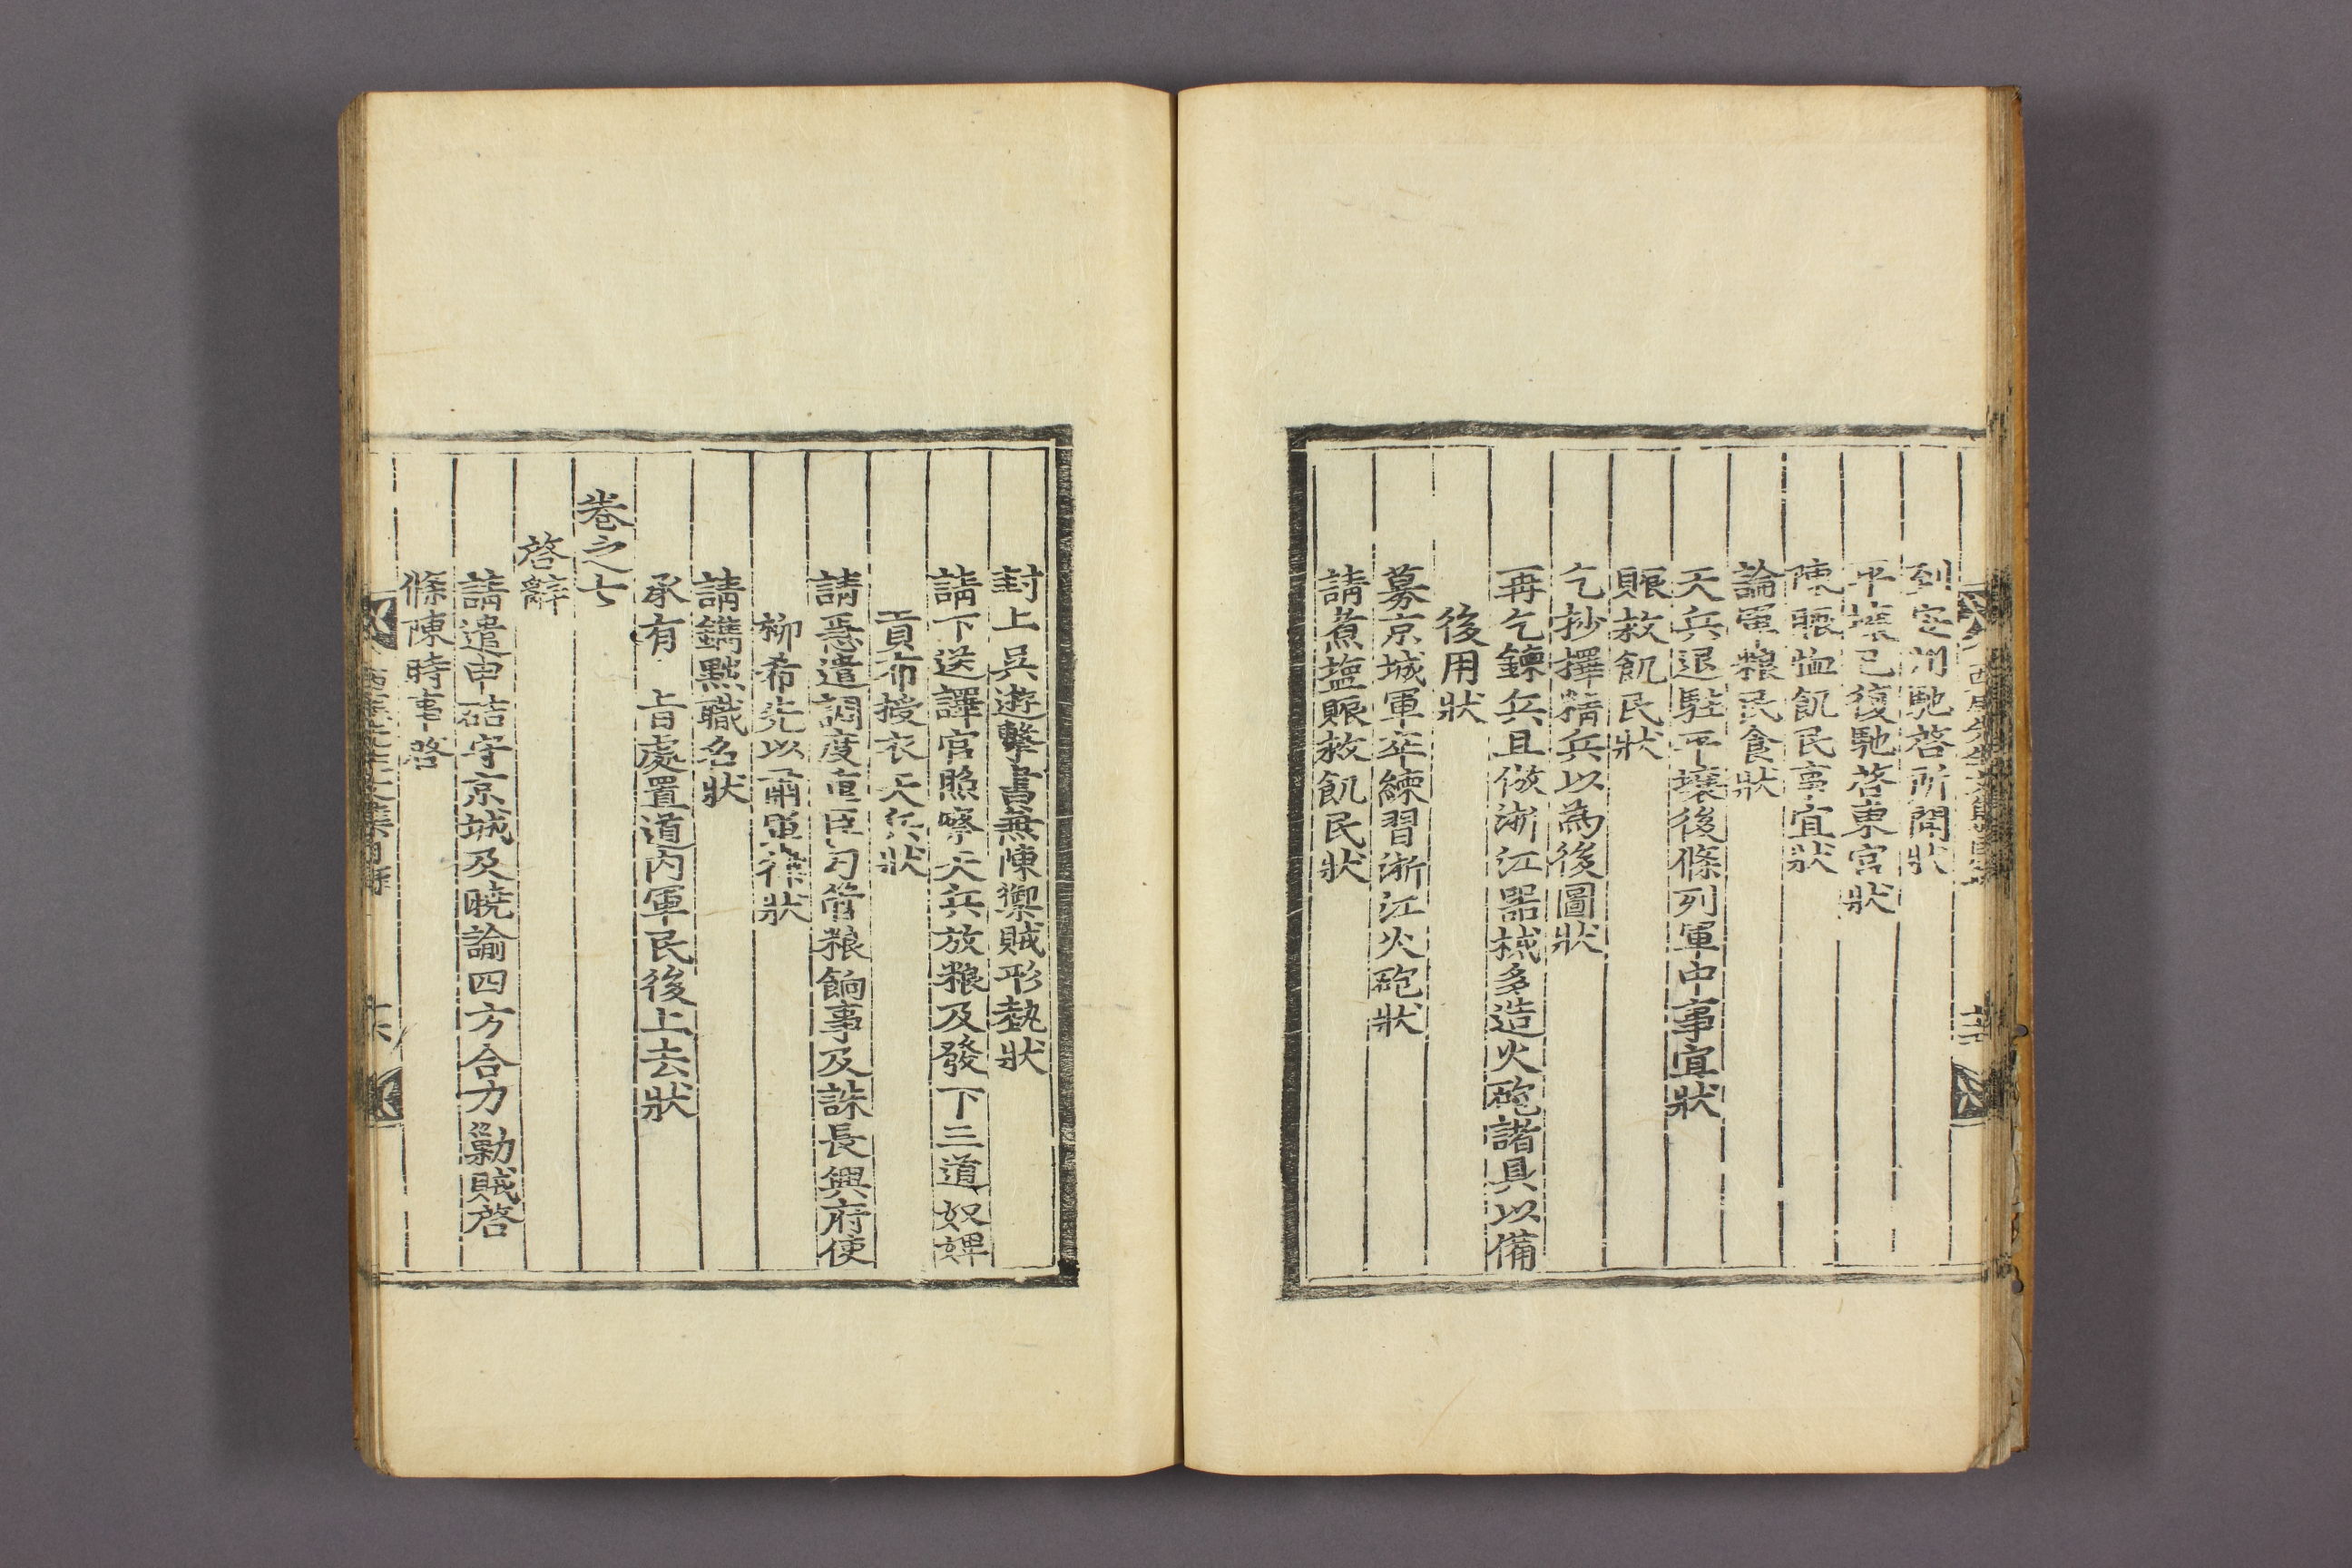 到定州馳啓所聞狀
平壤已復馳啓東宮狀
陳賑恤飢民事宜狀
論軍粮民食狀
天兵退駐平壤後條列軍中事宜狀
賑救飢民狀
乞抄擇精兵以為後圖狀
再乞鍊兵且倣浙江器械多造火砲諸具以備
後用狀
募京城軍卒練習浙江火砲狀
請煮塩賑救飢民狀
封上吳遊擊書兼陳禦賊形勢狀
請下送譯官照察天兵放粮及發下三道奴婢
貢布授衣天兵狀
請急遣調度重臣勾管粮餉事及誅長興府使
柳希先以肅軍律狀
請鐫黜職名狀
承有 旨處置道內軍民後上去狀
卷之七
啓辭
請遣申硈守京城及曉諭四方合力勦賊啓
條陳時事啓